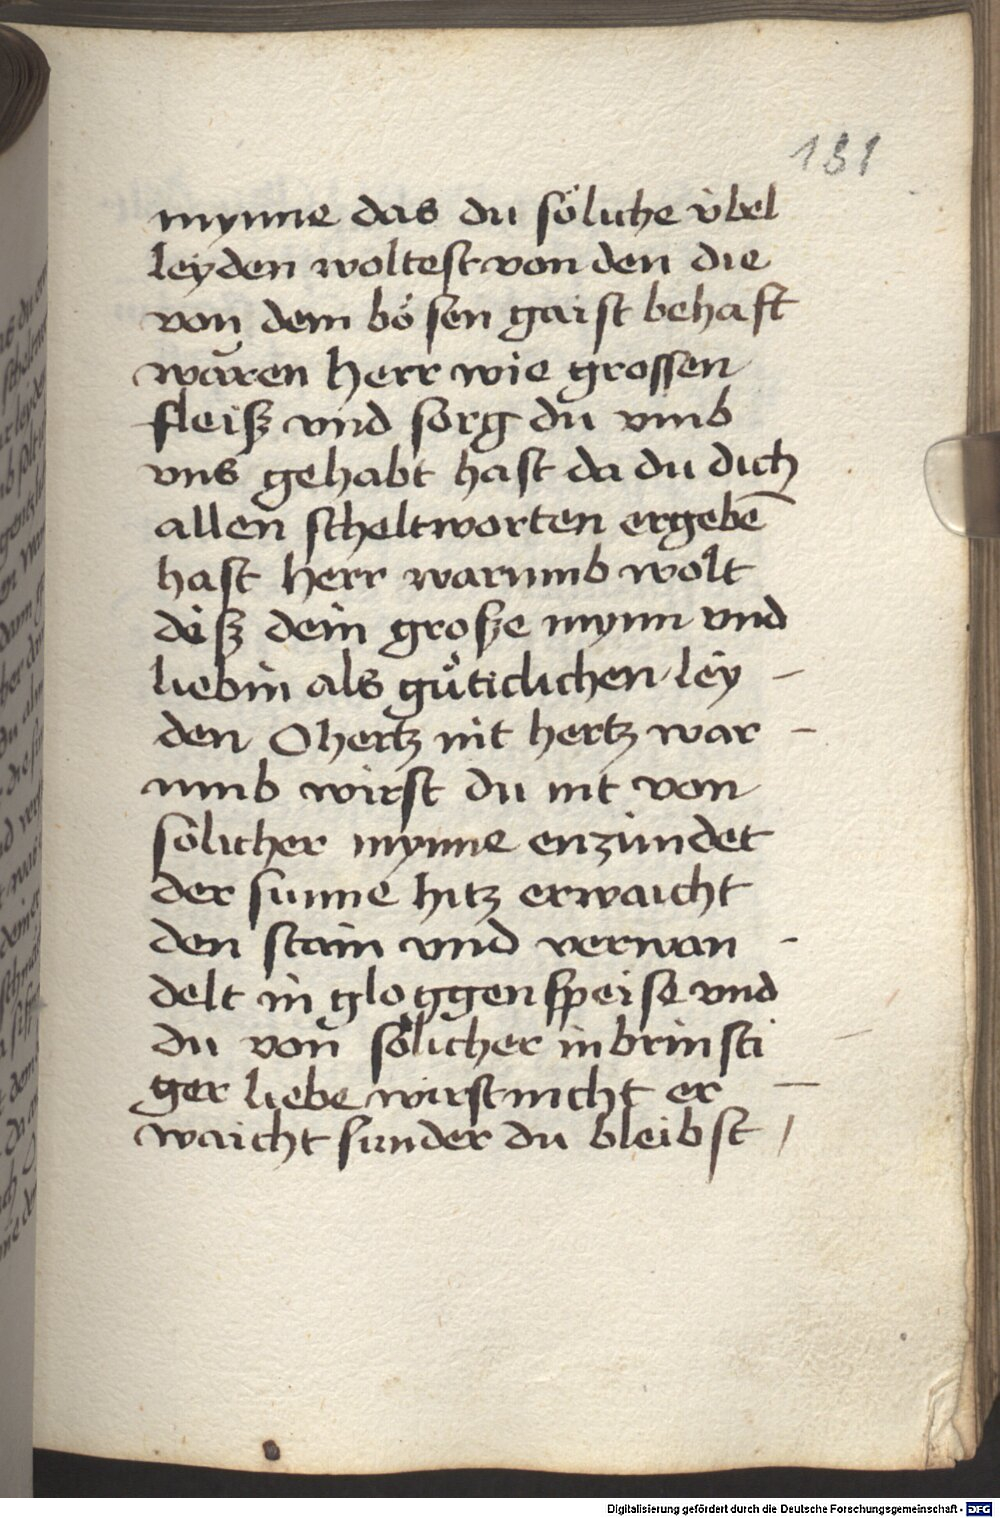 131
mynne das du söliche v̈bel
leyden woltest von den die
von dem bösen gaist behaft
wären herr wie grossen
fleiß vnd sorg du vmb
vns gehabt hast da du dich
allen scheltworten ergebē
hast herr warumb wolt
diß dein große mynn vnd
liebin als güticlichen ley –
den O hertz nit hertz war –
umb wirst du nit von
sölicher mynne enzündet
der sunne hitz erwaicht
den stain vnd verwan –
delt in gloggenspeise vnd
du von sölicher inbrinsti
ger liebe wirst nicht er –
waicht sunder du bleibst /
Digitalisierung gefördert durch die Deutsche Forschungsgemeinschaft - DFG